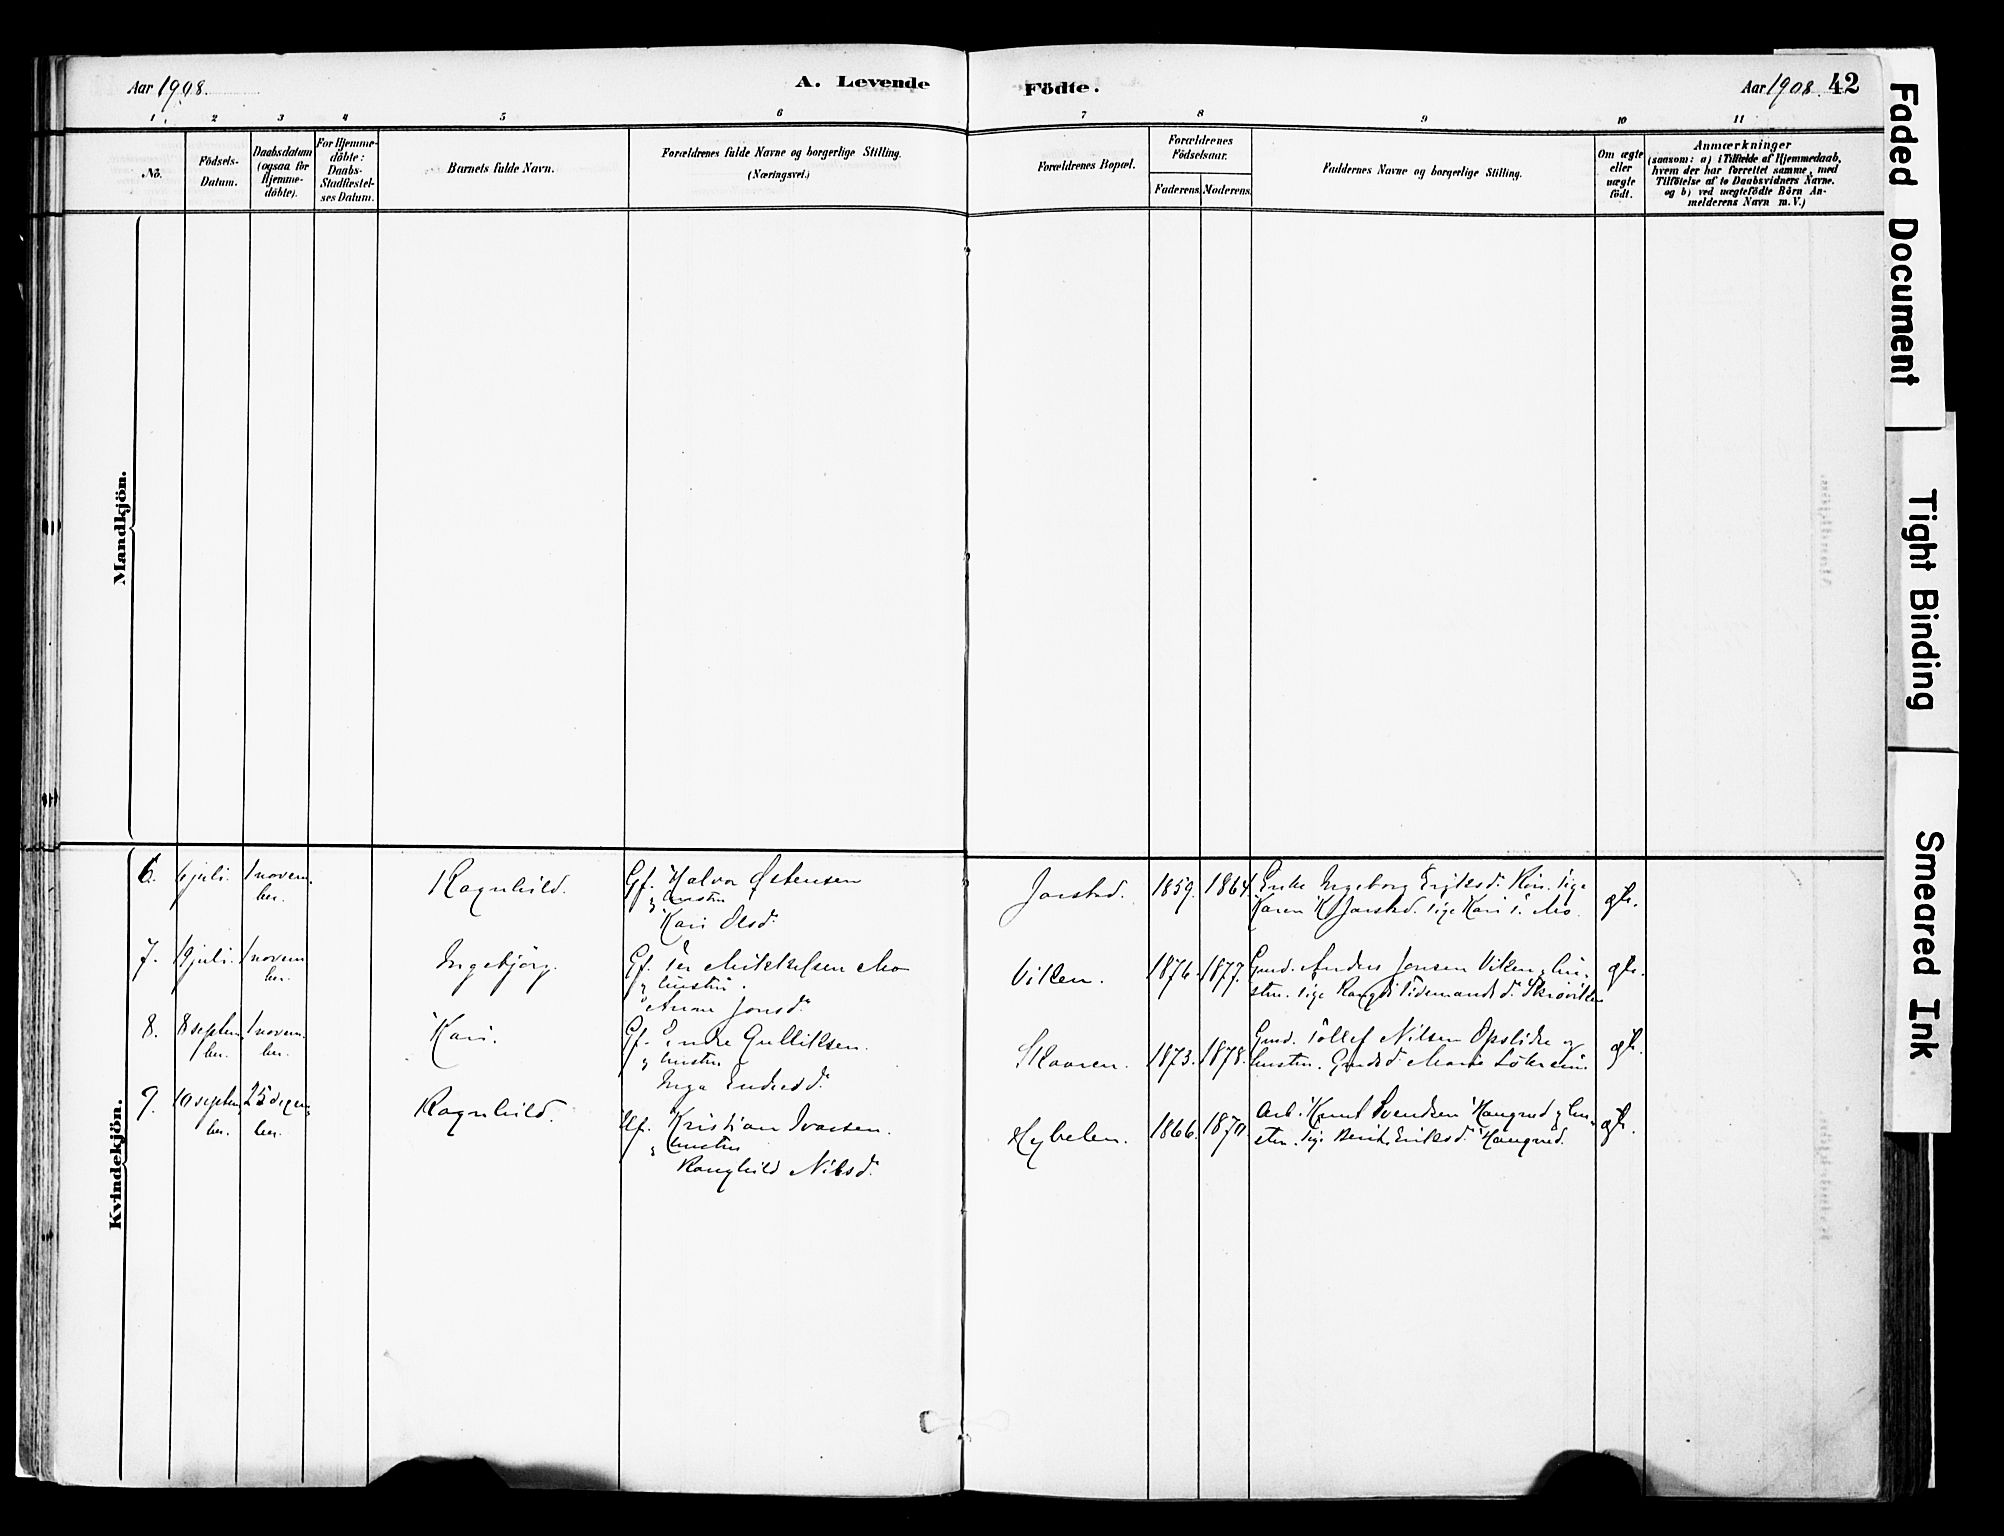 Aar 1908.
A. Levende
Födte.
Aar 1908. 42
1 2 3 4 5 6 7 8 9 10 11
No.
Födsels-
Datum.
Daabsdatum
(ogsaa for
Hjemme-
döbte).
For Hjemme-
döbte:
Daabs-
Stadfæstel-
ses Datum.
Barnets fulde Navn.
Forældrenes fulde Navne og borgerlige Stilling.
(Næringsvei.)
Forældrenes Bopæl.
Forældrenes
Födselsaar.
Faderens. Moderens.
Faddernes Navne og borgerlige Stilling.
Om ægte
eller
uægte
födt.
Anmærkninger
(saasom: a) i Tilfælde af Hjemmedaab,
hvem der har forrettet samme, med
Tilföielse af to Daabsvidners Navne.
og b) ved uægtefödte Börn An-
melderens Navn m. V.)
Mandkjön.
Kvindekjön.
6. 6 juli. 1 novem-
ber.
Ragnhild.
Gf. Halvor Østensen
og hustru
Kari Olsd.
Jarstad. 1859. 1864.
Enke Ingeborg Eriksd. pige
Karen K. Jarstad. pige Kari Mo.
gte.
7. 19 juli. 1 novem
ber.
Ingebjørg.
Gf. Per Mikkelsen Mo
og hustru.
Anne Jonsd.
Viken. 1876. 1877.
Gmd. Anders Jonsen Viken og hu-
stru. pige Tidemandsd. Skrøviken
gte.
8. 8 septem 1 novem
ber. ber.
Kari.
Gf. Endre Gulliksen.
og hustru
Inga Endresd.
Skaaren. 1873. 1878.
Gmd. Tollef Nilsen Opslidre og
hustru. Gmdsd. Marie
gte.
9. 10 septem 25 decem-
ber. ber.
Ragnhild.
Kristian Ivarsen.
og hustru
Ranghild Nilsd.
Hybelen. 1866. 1870.
Arb. Knut Svendsen Haugrud og hu-
stru. pige Berit Eriksd. Haugrud.
gte.
Faded Document
Tight Binding
Smeared Ink